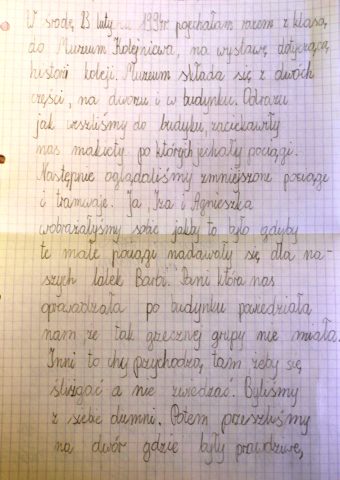 W środę 23 lutego 1994r pojechałam razem z klasą
do Muzeum Kolejnicwa, na wystawę dotyczącą
historii koleji. Muzeum składa się z dwóch
części, na dworzu i w budynku. Odrazu
jak weszliśmy do budyku, zaciekawiły
nas makiety po których jechały pociągi.
Następnie oglądaliśmy zmniejszone pociągi
i tramwaje. Ja, Iza i Agnieszka
wobrażałyśmy sobie jakby to było gdyby
te małe pociągi nadawały się dla na-
szych lalek Barbi. Pani która nas
oprowadzała po budynku powiedziała
nam że tak grzecznej grupy nie miała.
Inni to chy przychodzą tam żeby się
ślizgać a nie zwiedzać. Byliśmy
z siebie dumni. Potem przeszliśmy
na dwór gdzie były prawdziwe,